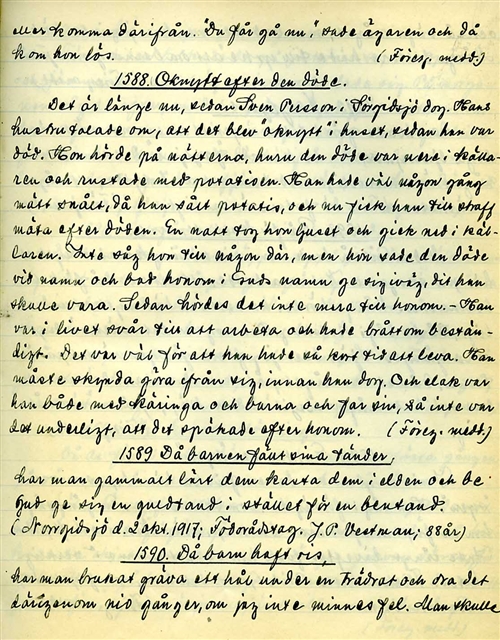 eller komma därifrån. "Du får gå nu," sade ägaren och då
kom hon lös. (Föreg. medd.)
1588. Oknytt efter den döde.
Det är länge nu, sedan Sven Persson i Norrgidsjö dog. Hans
hustru talade om, att det blev "oknytt" i huset, sedan han var
död. Hon hörde på nätterna, huru den döde var nere i källa-
ren och rustade med potatisen. Han hade väl någon gång
mätt snålt, då han sålt potatis, och nu fick han till straff
mäta efter döden. En natt tog hon ljuset och gick ned i käl-
laren. Inte såg hon till någon där, men hon sade den döde
vid namn och bad honom i Guds namn ge sig iväg, dit han
skulle vara. Sedan hördes det inte mera till honom. – Han
var i livet svår till att arbeta och hade bråttom bestän-
digt. Det var väl för att han hade så kort tid att leva. Han
måste skynda göra ifrån sig, innan han dog. Och elak var
han både med käringa och barna och far sin, så inte var
det underligt, att det spökade efter honom. (Föreg. medd.)
1589 Då barnen fällt sina tänder,
har man gammalt lärt dem kasta dem i elden och be
Gud ge sig en guldtand i stället för en bentand.
(Norrgidsjö d. 2 okt. 1917; Födorådstag. J. P. Vestman; 88 år)
1590. Då barn haft ris,
har man brukat gräva ett hål under en trädrot och dra det
därigenom nio gånger, om jag inte minnes fel. Man skulle